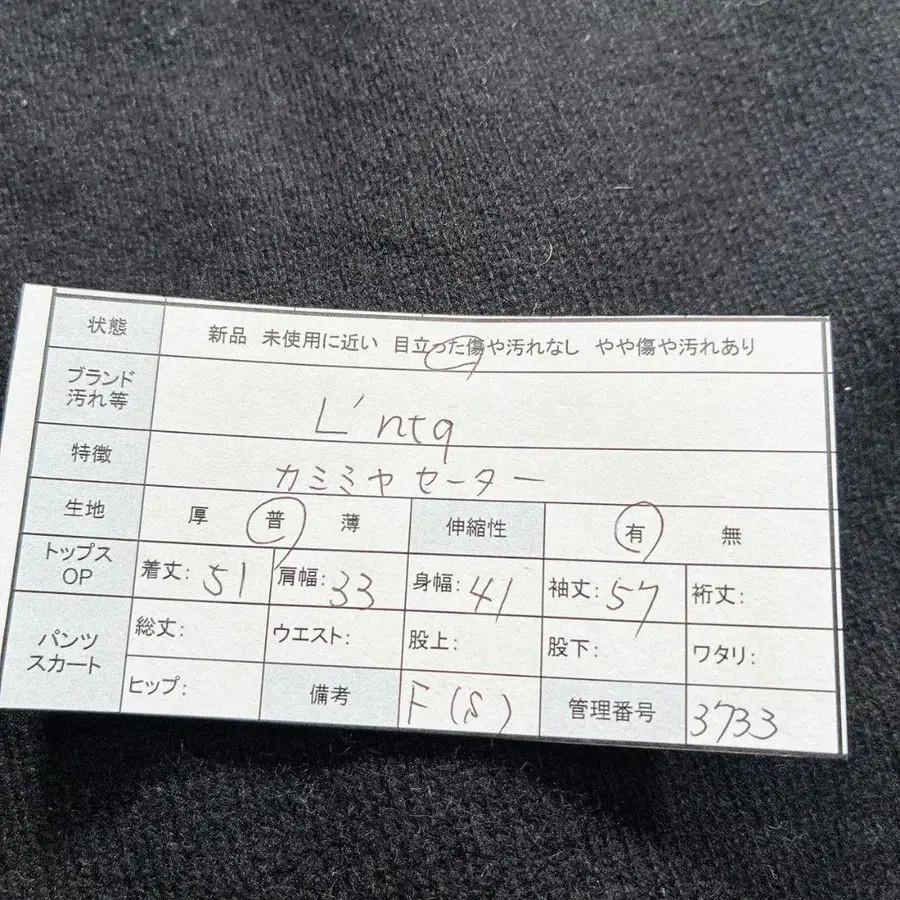 状態 新品 未使用に近い 目立った傷や汚れなし やや傷や汚れあり
ブランド
汚れ等 L'ntq
特徴 カミミヤセーター
生地 厚 普 薄 伸縮性 有 無
トップス
OP 着丈:51 肩幅:33 身幅:41 袖丈:57 裄丈:
パンツ
スカート 総丈: ウエスト: 股上: 股下: ワタリ:
ヒップ: 備考 F(S) 管理番号 3733